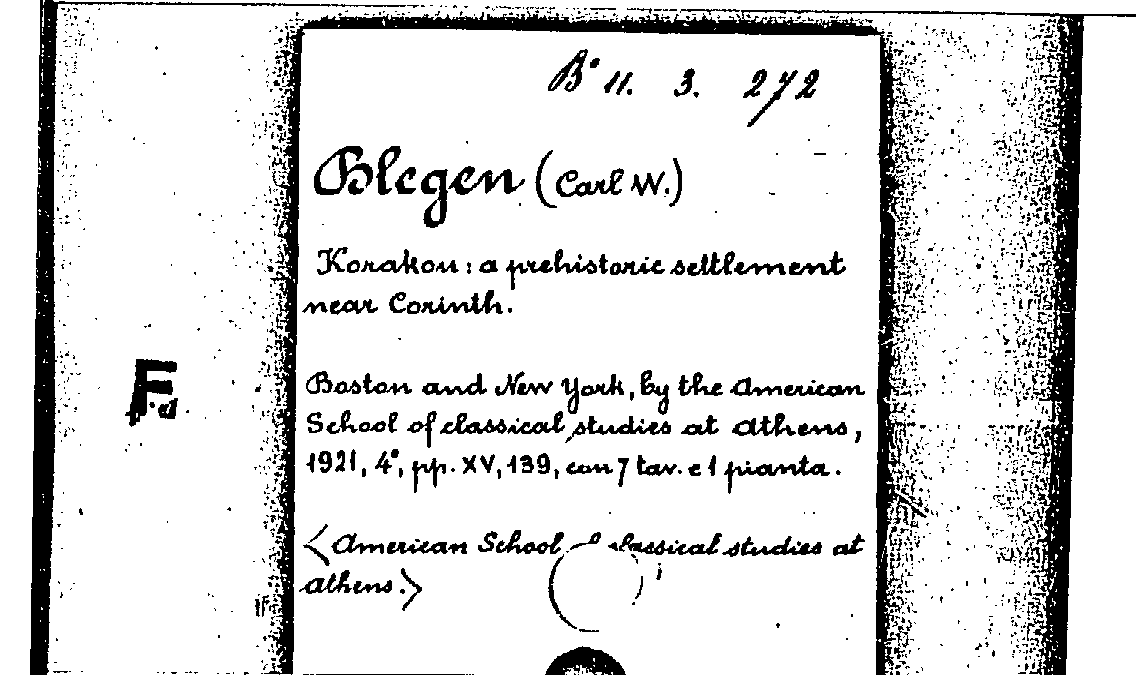 B° 11. 3. 272
Blegen (Carl W.)
Korakou : a prehistoric settlement
near Corinth.
Boston and New York, by the American
School of classical studies at Athens,
1921, 4°, pp. XV, 139, con 7 tav. e 1 pianta.
<American School of classical studies at
Athens.>